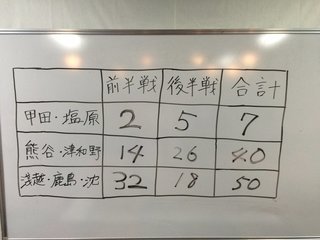 前半戦 後半戦 合計
甲田・塩原 2 5 7
熊谷・津和野 14 26 40
浅越・鹿島・沈 32 18 50